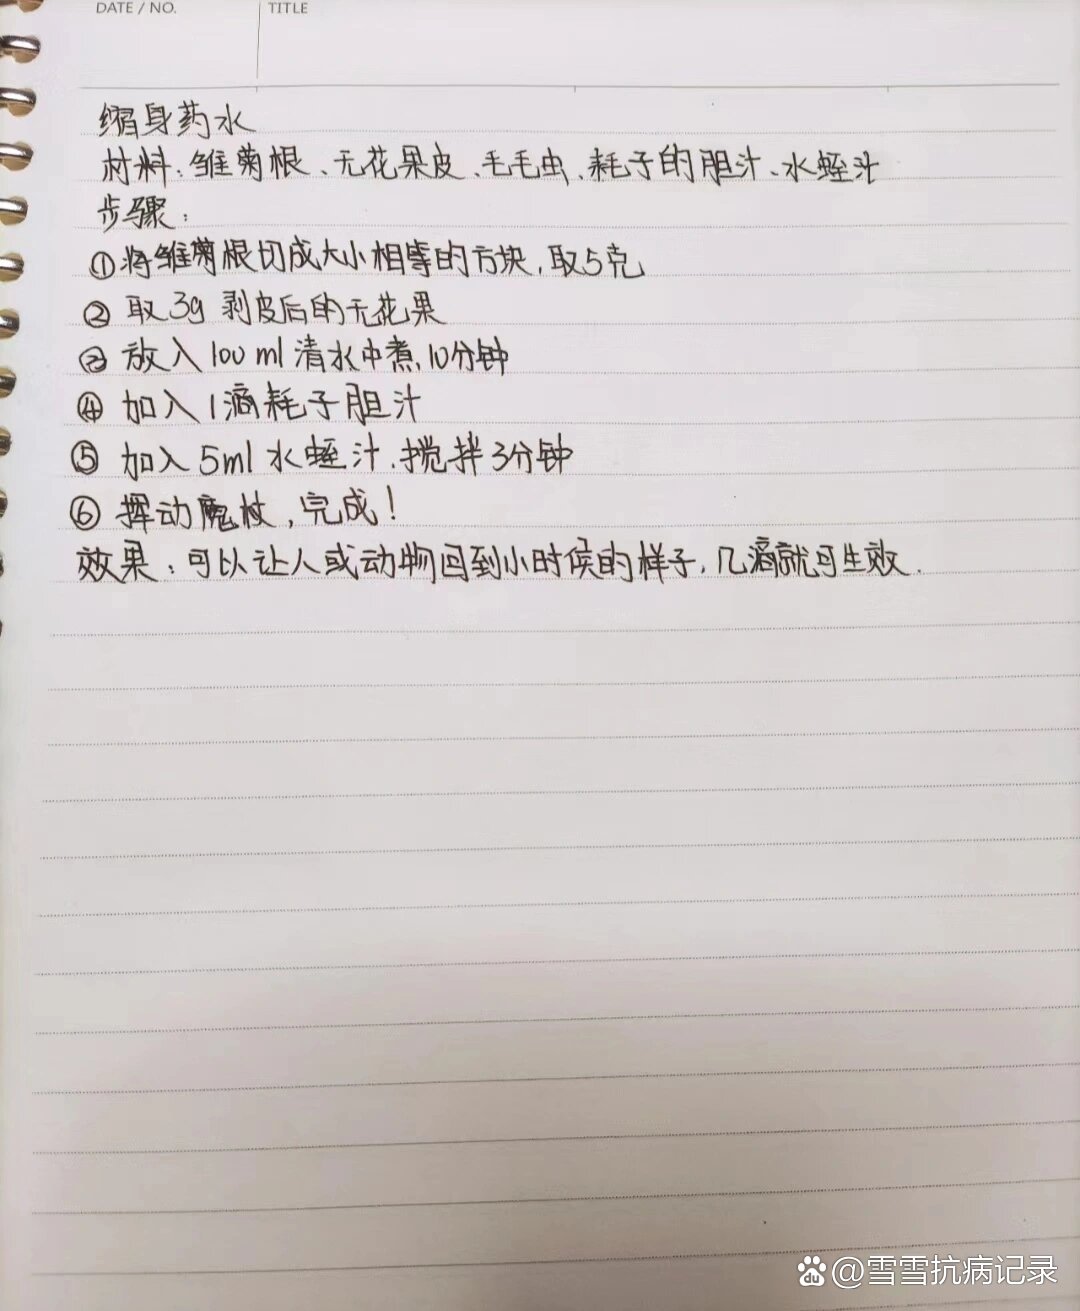 DATE / NO.
TITLE
缩身药水
材料:雏菊根、无花果皮、毛毛虫、耗子的胆汁、水蛭汁
步骤:
①将雏菊根切成大小相等的方块,取5克
② 取3g 剥皮后的无花果
③ 放入100ml清水中煮,10分钟
④ 加入1滴耗子胆汁
⑤ 加入5ml水蛭汁.搅拌3分钟
⑥ 挥动魔杖,完成!
效果:可以让人或动物回到小时候的样子,几滴就可生效.
@雪雪抗病记录